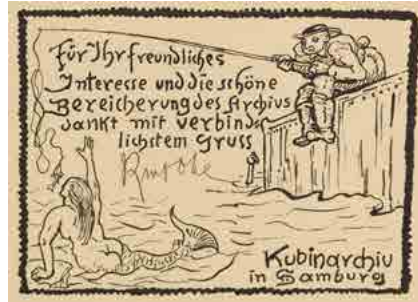 Für Ihr freundliches
Interesse und die schöne
Bereicherung des Archivs
dankt mit verbind-
lichstem Gruss
Kubinarchiv
in Hamburg